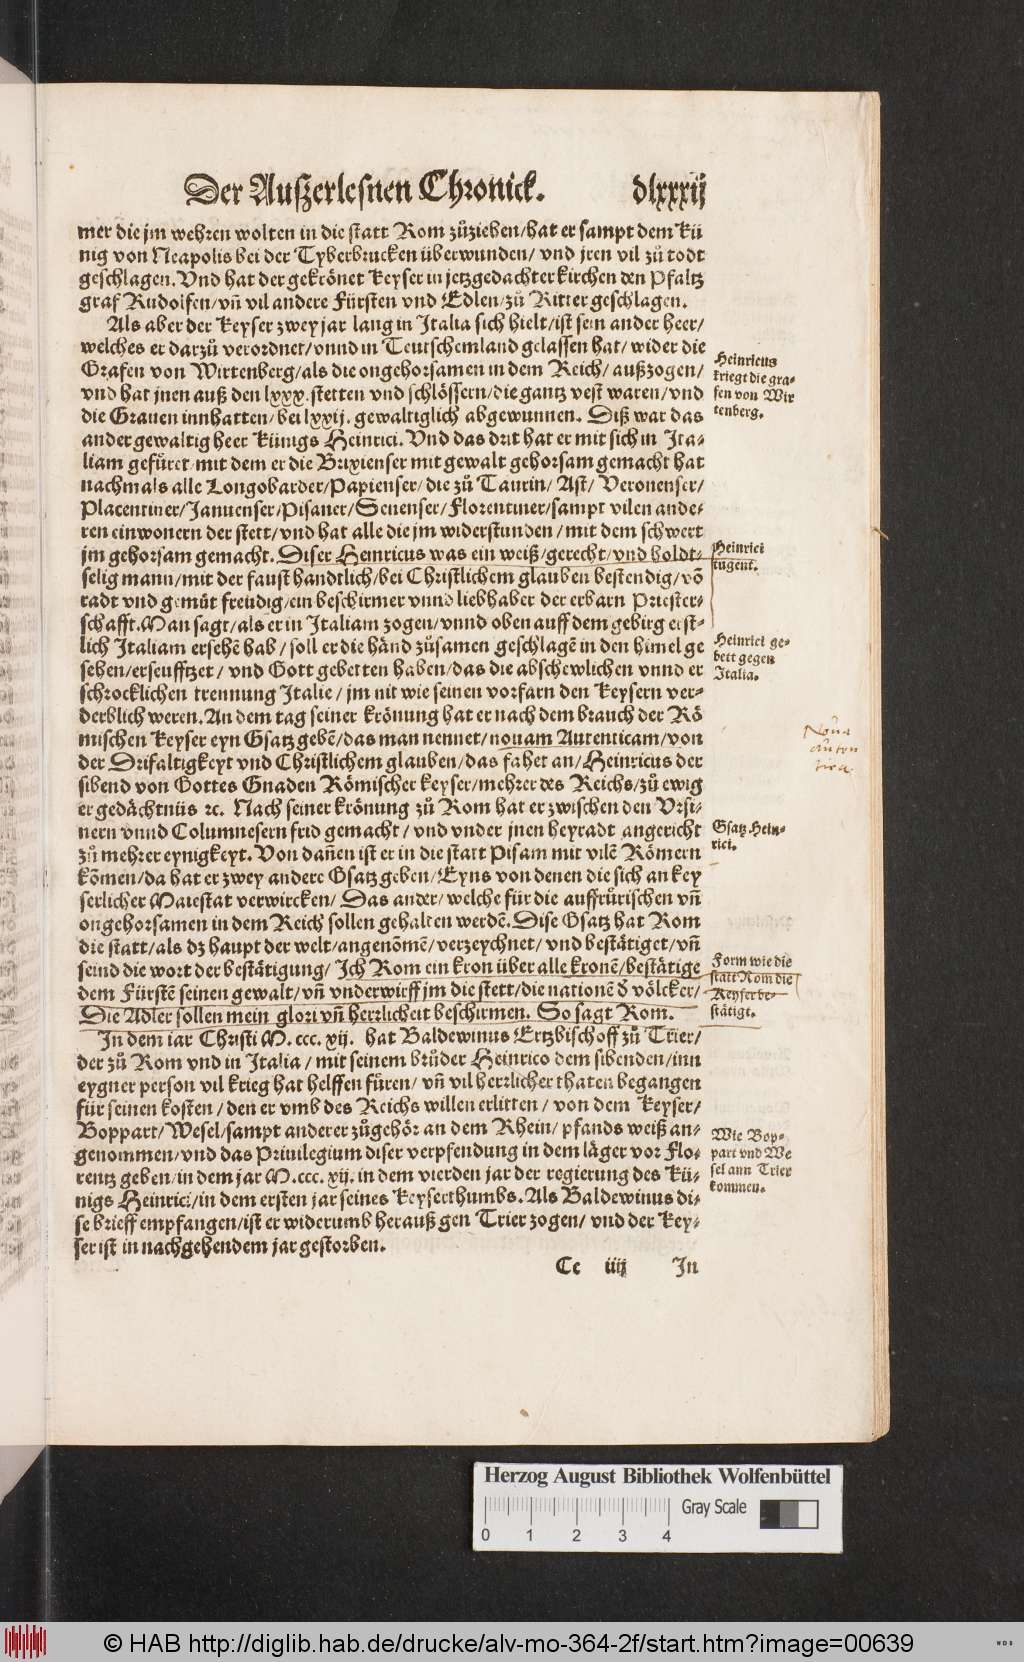 Der Außerlesnen Chronick. dlxxxij
mer die jm wehren wolten in die statt Rom zůziehen/hat er sampt dem Kü
nig von Neapolis bei der Tyberbrucken überwunden/ vnd jren vil zů todt
geschlagen. Vnd hat der gekrönet Keyser in jetzgedachter kirchen den Pfaltz
graf Rudolfen/vñ vil andere Fürsten vnd Edlen/zů Ritter geschlagen.
Als aber der Keyser zwey jar lang in Italia sich hielt/ist sein ander heer/
welches er darzů verordnet/vnnd in Teutschemland gelassen hat/ wider die
Grafen von Wirtenberg/als die ongehorsamen in dem Reich/ außzogen/
vnd hat jnen auß den lxxx. stetten vnd schlössern/die gantz vest waren/vnd
die Grauen innhatten/bei lxxij. gewaltiglich abgewunnen. Diß war das
ander gewaltig heer Künigs Heinrici. Vnd das drit hat er mit sich in Ita-
liam gefůret/mit dem er die Brixienser mit gewalt gehorsam gemacht hat
nachmals alle Longobarder/Papienser/die zů Taurin/ Ast/ Veronenser/
Placentiner/Januenser/Pisaner/Senenser/Florentiner/sampt vilen ande-
ren einwonern der stett/vnd hat alle die jm widerstunden/mit dem schwert
jm gehorsam gemacht. Diser Heinricus was ein weiß/gerecht/vnd holdt-
selig mann/mit der faust handtlich/bei Christlichem glauben bestendig/võ
radt vnd gemüt freudig/ein beschirmer vnnd liebhaber der erbarn Priester-
schafft. Man sagt/als er in Italiam zogen/vnnd oben auff dem gebirg erst-
lich Italiam ersehẽ hab/soll er die händ zůsamen geschlagẽ in den himel ge
sehen/erseufftzet/ vnd Gott gebetten haben/das die abschewlichen vnnd er
schrocklichen trennung Italie/ jm nit wie seinen vorfarn den Keysern ver-
derblich weren. An dem tag seiner krönung hat er nach dem brauch der Rö
mischen Keyser eyn Gsatz gebẽ/das man nennet/nouam Autenticam/von
der Drifaltigkeyt vnd Christlichem glauben/das fahet an/Heinricus der
sibend von Gottes Gnaden Römischer Keyser/mehrer des Reichs/zů ewig
er gedächtnüs ꝛc. Nach seiner krönung zů Rom hat er zwischen den Vrsi-
nern vnnd Columnesern frid gemacht/ vnd vnder jnen heyradt angericht
zů mehrer eynigkeyt. Von dañen ist er in die statt Pisam mit vilẽ Römern
kõmen/da hat er zwey andere Gsatz geben/Eyns von denen die sich an key
serlicher Maiestat verwircken/ Das ander/welche für die auffrürischen vñ
ongehorsamen in dem Reich sollen gehalten werdẽ. Dise Gsatz hat Rom
die statt/als dz haupt der welt/angenõmẽ/verzeychnet/ vnd bestätiget/vñ
seind die wort der bestätigung/Ich Rom ein kron über alle kronẽ/bestätige
dem Fürstẽ seinen gewalt/vñ vnderwirff jm die stett/die nationẽ ð völcker/
Die Adler sollen mein glori vñ herrlicheit beschirmen. So sagt Rom.
In dem jar Christi M. ccc. xij. hat Baldewinus Ertzbischoff zů Trier/
der zů Rom vnd in Italia/ mit seinem brůder Heinrico dem sibenden/inn
eygner person vil krieg hat helffen füren/ vñ vil herrlicher thaten begangen
für seinen kosten/den er vmb des Reichs willen erlitten/ von dem Keyser/
Boppart/Wesel/sampt anderer zůgehör an dem Rhein/pfands weiß an-
genommen/vnd das Priuilegium diser verpfendung in dem läger vor Flo-
rentz geben/in dem jar M.ccc. xij. in dem vierden jar der regierung des Kü-
nigs Heinrici/in dem ersten jar seines Keyserthumbs. Als Baldewinus di-
se brieff empfangen/ist er widerumb herauß gen Trier zogen/ vnd der Key-
ser ist in nachgehendem jar gestorben.
Cc iiij In
Heinricus
kriegt die gra-
fen von Wir
tenberg.
Heinrici
tugent.
Heinrici ge-
bett gegen
Italia.
Noua
Auten
tica
Gsatz Hein-
rici.
Form wie die
statt Rom die
Keyser be-
stätigt.
Wie Bop-
part vnd We
sel ann Trier
kommen.
Herzog August Bibliothek Wolfenbüttel
Gray Scale
0 1 2 3 4
© HAB http://diglib.hab.de/drucke/alv-mo-364-2f/start.htm?image=00639